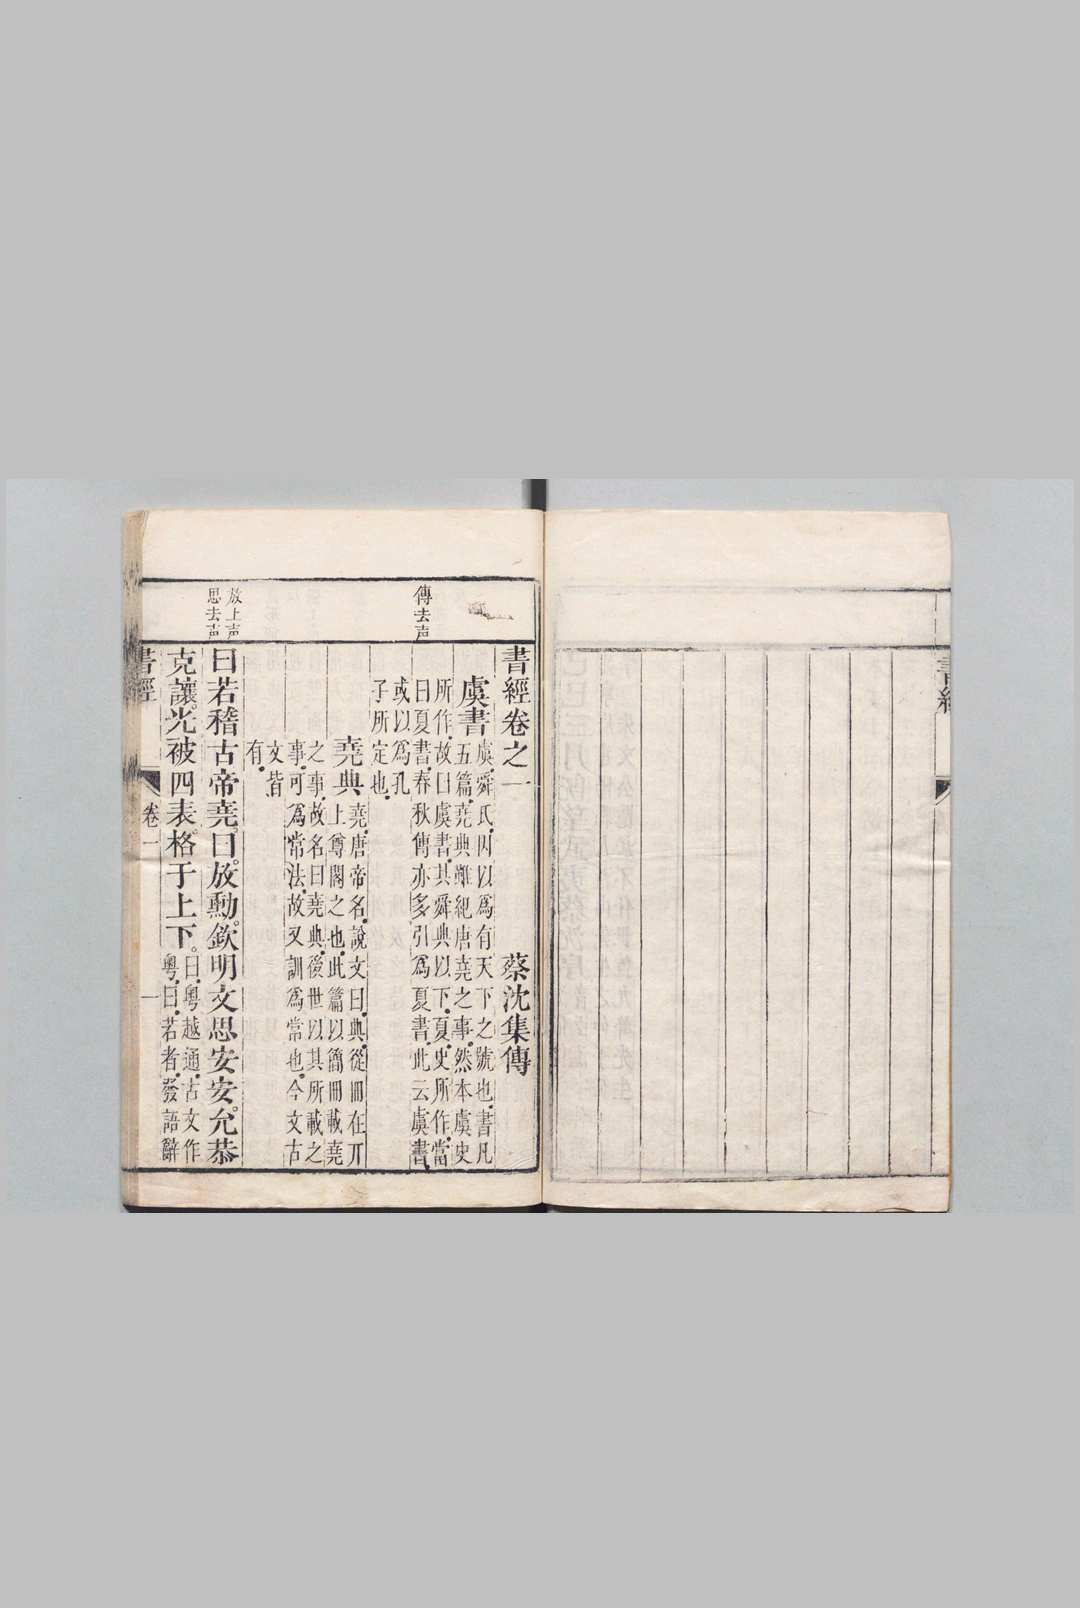 書經卷之一　蔡沈集傳
傳去声
虞書　虞、舜氏、因以爲有天下之號也、書凡
五篇、堯典雖紀唐堯之事、然本虞史
所作、故曰虞書、其舜典以下、夏史所作、當
曰夏書、春秋傳亦多引爲夏書、此云虞書
或以爲孔
子所定也、
堯典　堯、唐帝名、說文曰、典、從冊在丌
上、尊閣之也、此篇以簡冊載堯
之事、故名曰堯典、後世以其所載之
事、可爲常法、故又訓爲常也、今文古
文皆
有、
放上声
思去声
曰若稽古帝堯。曰放勳。欽明文思安安。允恭
克讓。光被四表。格于上下。曰、粵越通、古文作
粵、曰若者、發語辭
書經　卷一　一